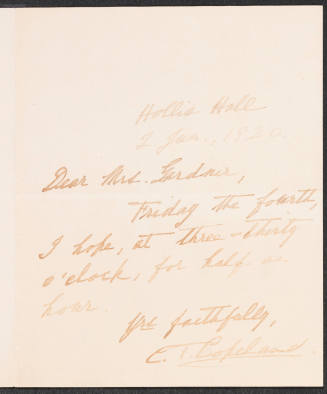 Hollis Hall
2 Jun., 1920.
Dear Mrs. Gardner,
Friday the fourth,
I hope, at three-thirty
o'clock, for half an
hour.
Yrs faithfully,
C. T. Copeland.